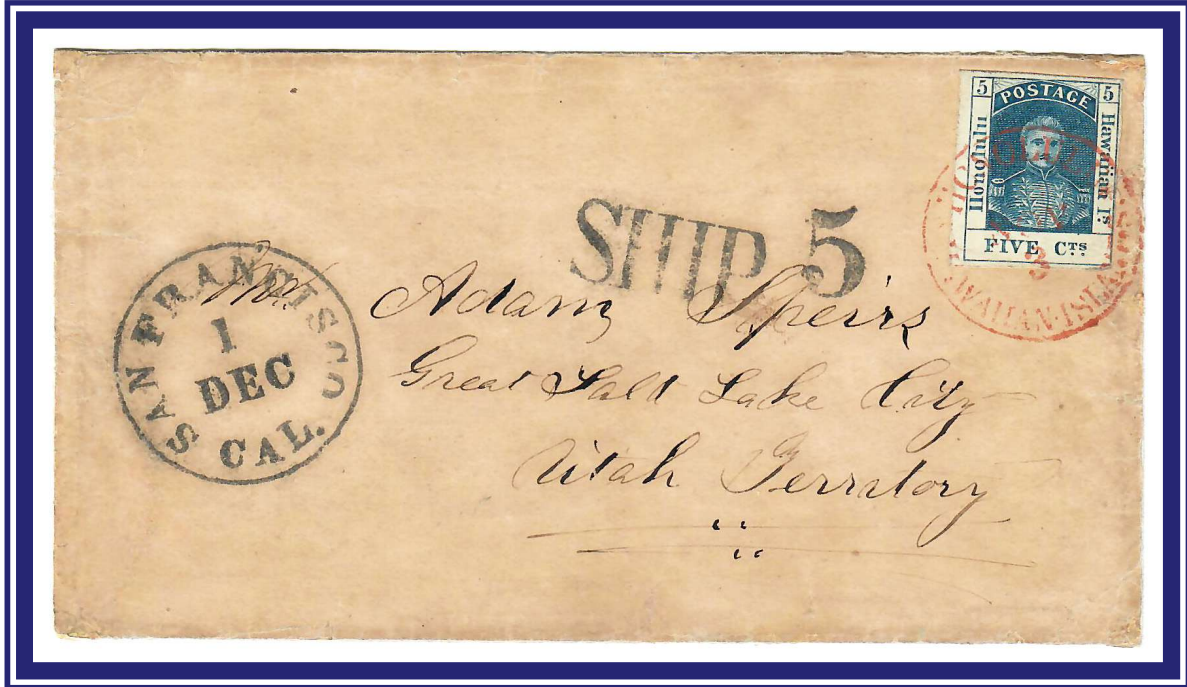 5 POSTAGE 5
Honolulu
Hawaiian Is.
FIVE CTS.
HAWAIIAN·ISLANDS
SHIP 5
SAN FRANCISCO
1
DEC
CAL.
Adam Speirs
Great Salt Lake City
Utah Territory